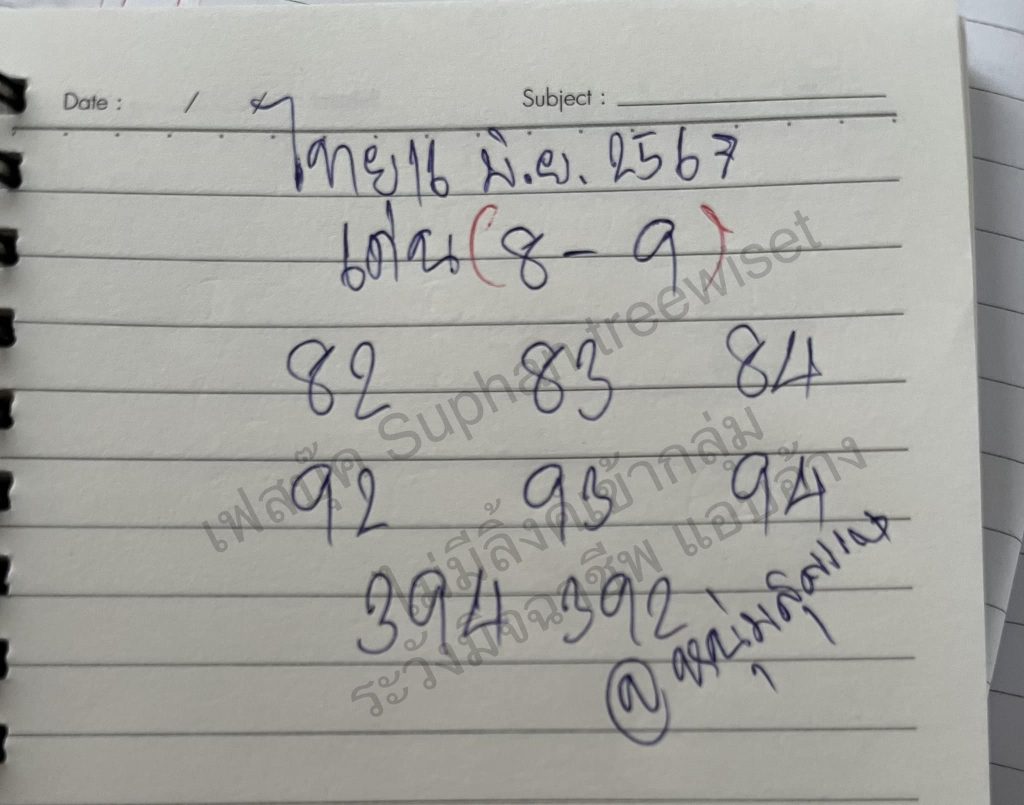 Date : / Subject :
ไทย 16 มิ.ย. 2567
เด่น (8 - 9)
82 83 84
92 93 94
394 392
@หนุ่มสุพรรณ
เฟสบุ๊ค Suphan treewiset
ไม่มีลิ้งค์เข้ากลุ่ม
ระวังมิจฉาชีพ แอบอ้าง